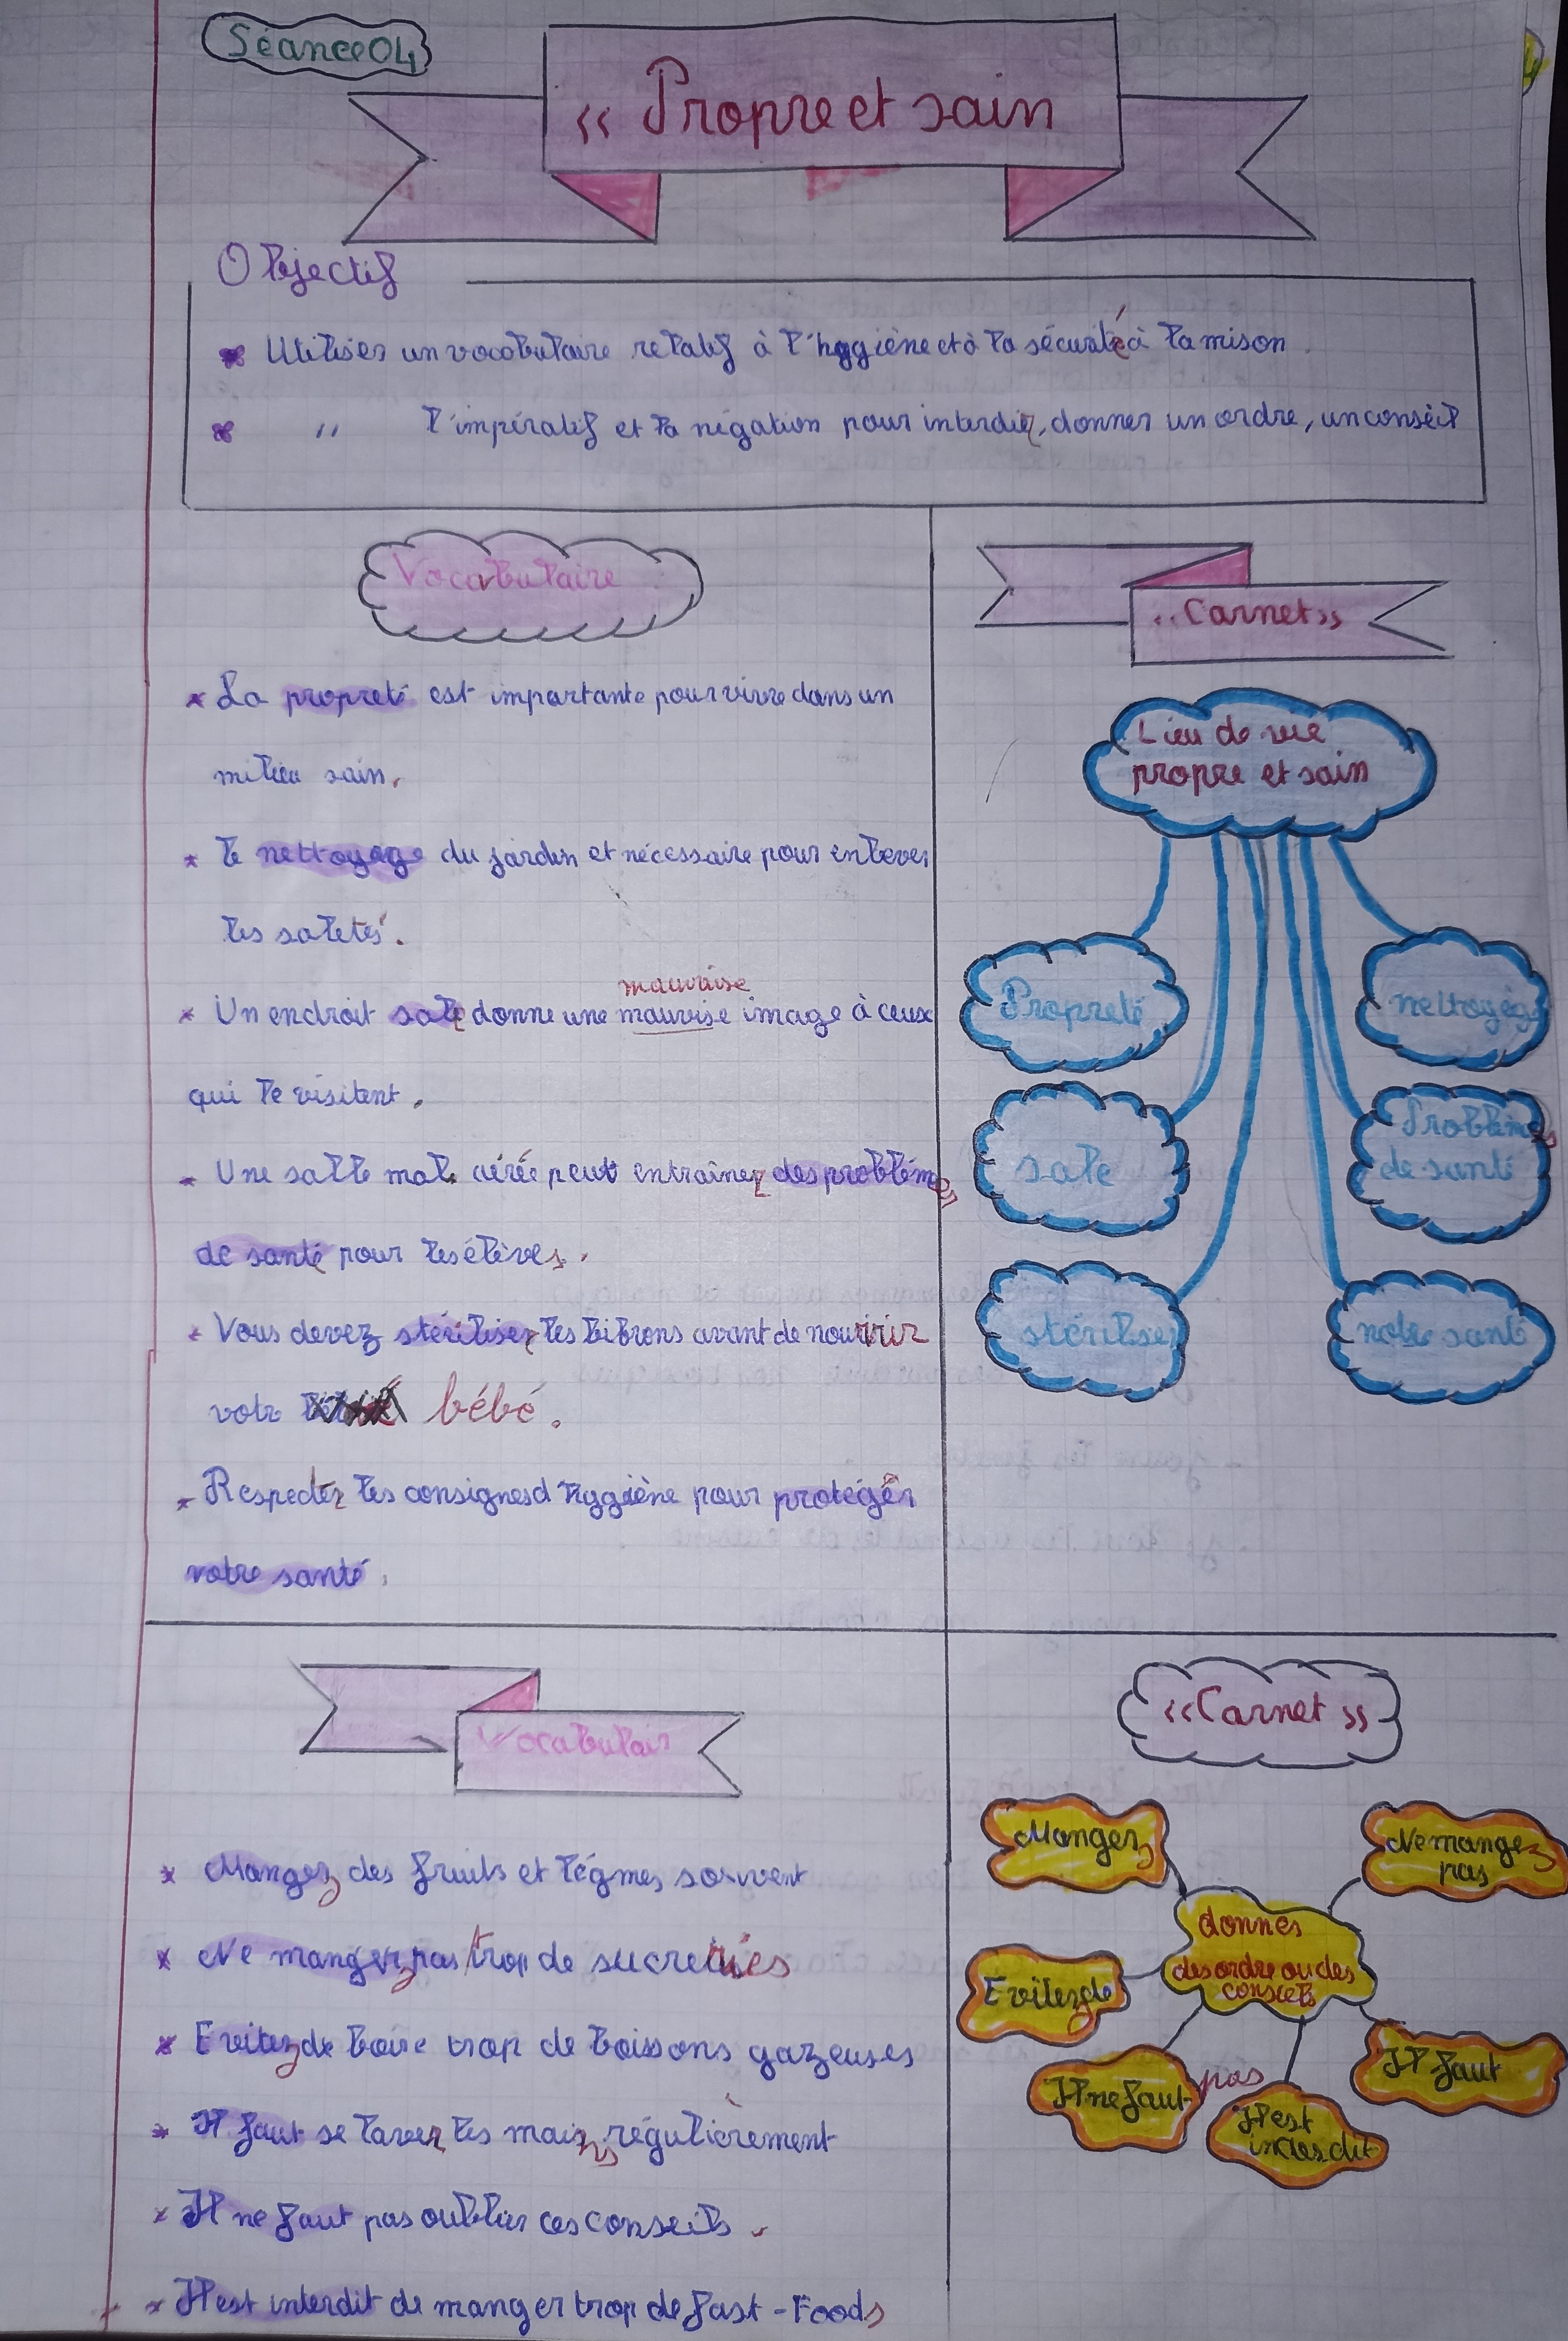 Séance 04
« Propre et sain
Objectif
Utiliser un vocabulaire relatif à l'hygiène et à la sécurité à la mison
" l'impératif et la négation pour interdir, donner un ordre, un conseil
Vocabulaire
* La propreté est importante pour vivre dans un
milieu sain.
* le nettoyage du jardin et nécessaire pour enlever
les saletés.
mauvaise
* Un endroit sale donne une mauvise image à ceux
qui le visitent.
* Une salle mal aérée peut entrainer des problèmes
de santé pour les élèves.
* Vous devez stériliser les bibrons avant de nourrir
votr bébé.
* Respecter les consignes d'hygiène pour protéger
votre santé.
«Carnet»
Lieu de vie
propre et sain
Propreté
nettoyage
sale
Problèmes
de santé
stériliser
notre santé
Vocabulair
* Mangez des fruits et légmes souvent
* Ne mangez pas trop de sucreries
* Evitez de boire trop de boissons gazeuses
* Il faut se laver les mains régulièrement
* Il ne faut pas oublier ces conseils.
* Il est interdit de manger trop de fast-Foods
«Carnet»
Mangez
Ne mangez
pas
donner
des ordre ou des
conseils
Evitez de
Il ne faut pas
Il est
interdit
Il faut